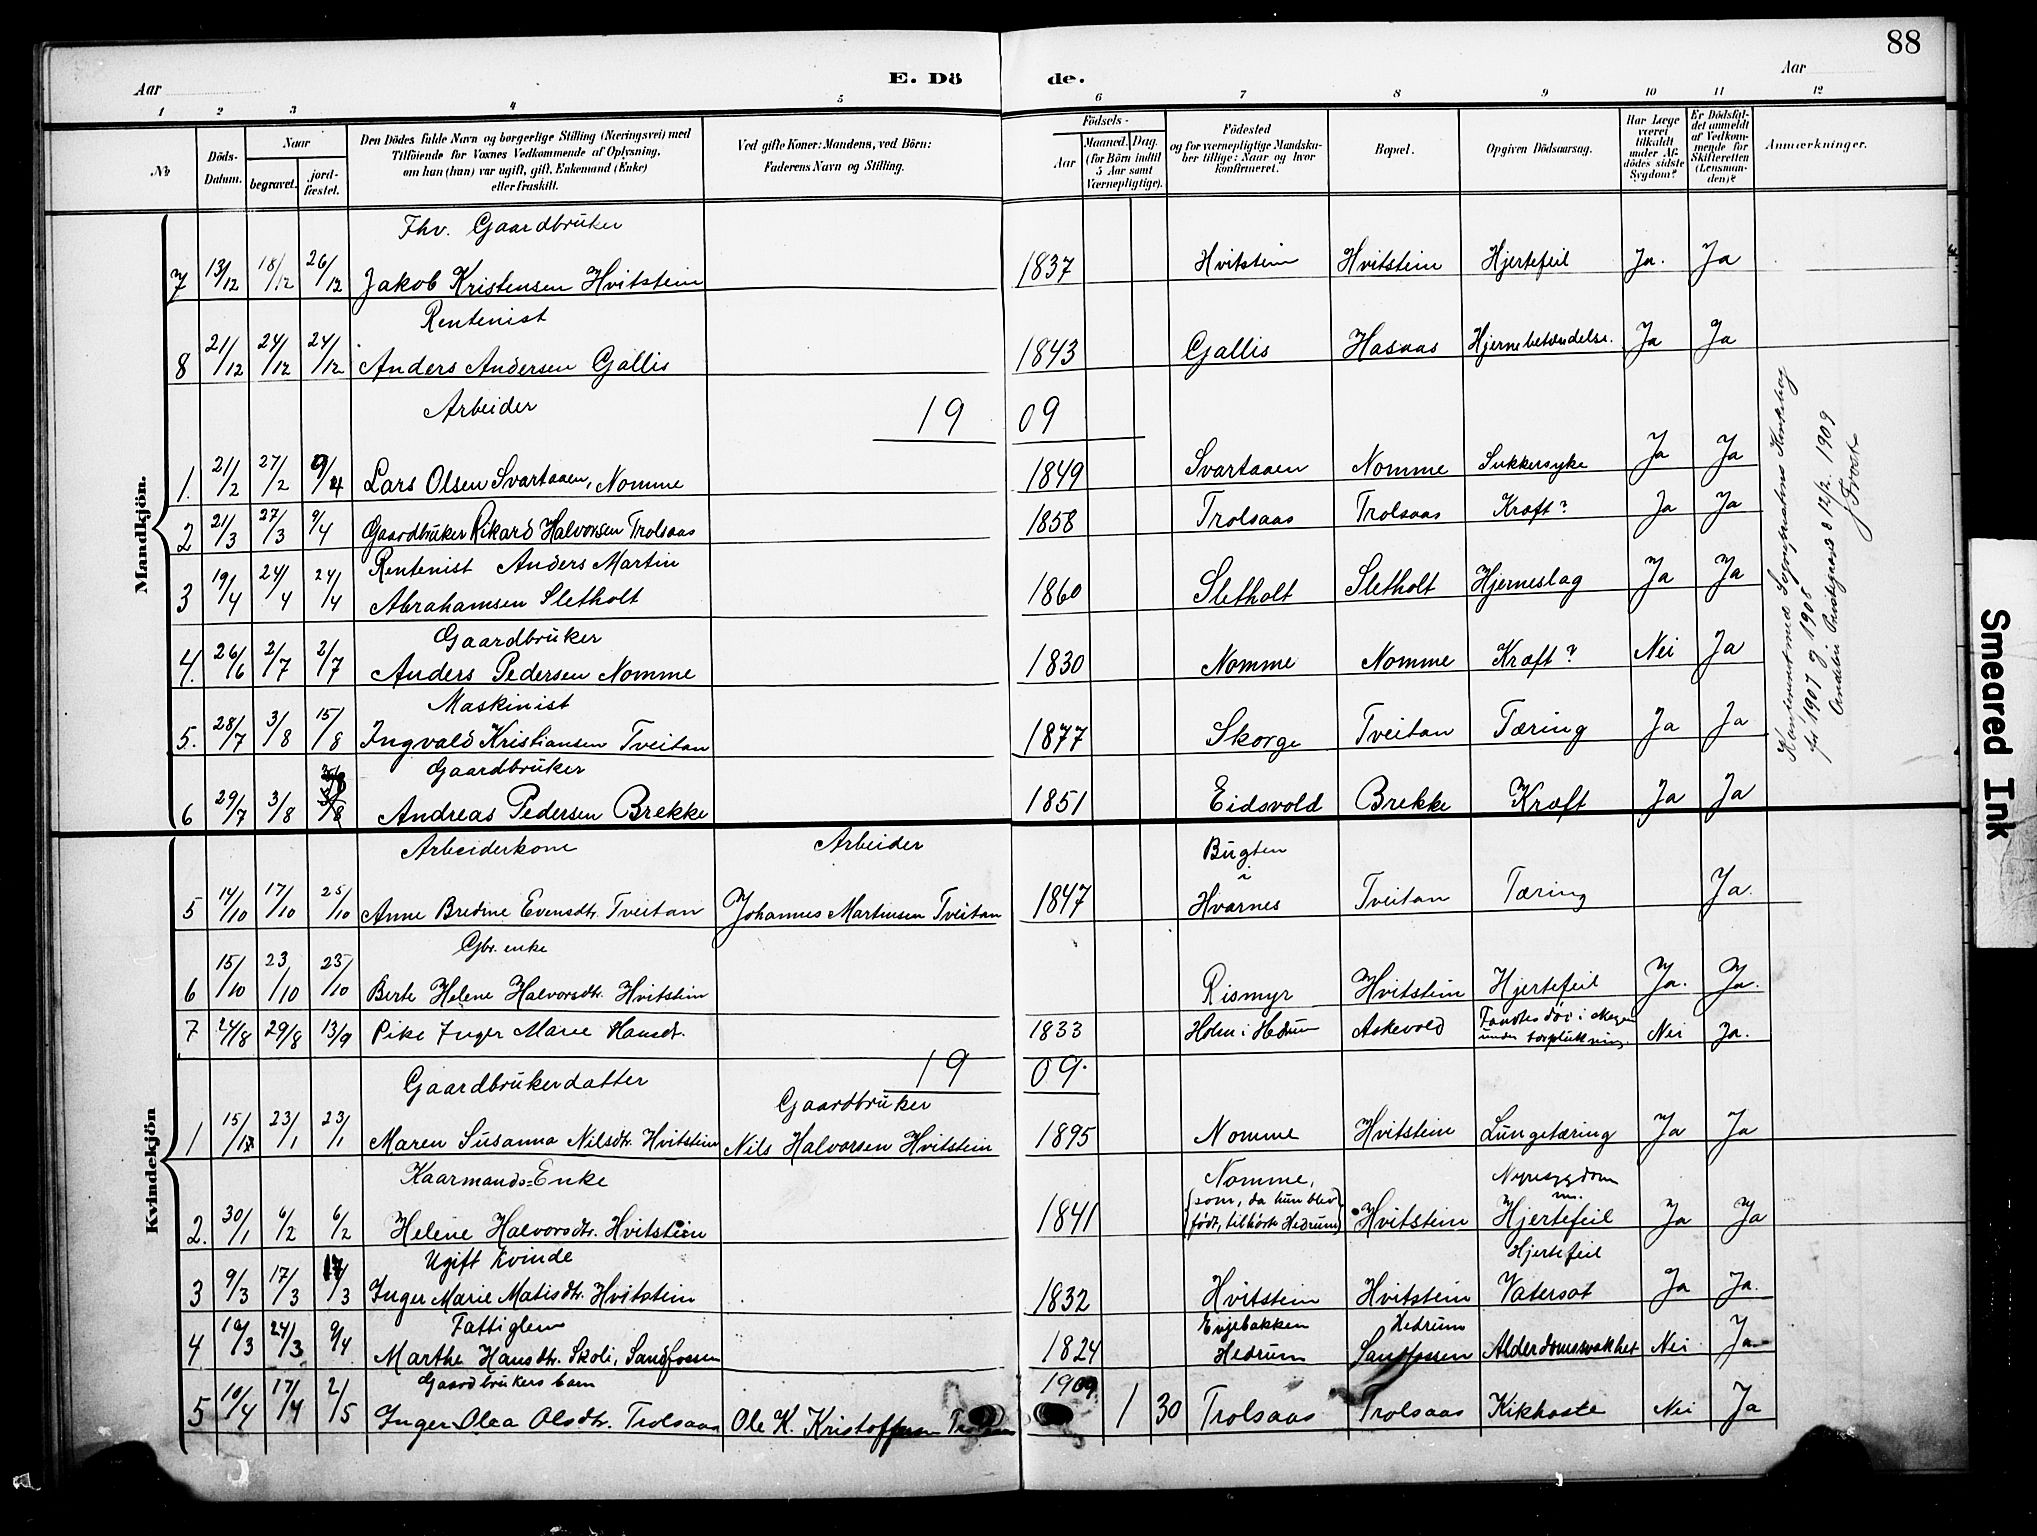 88
Aar
E. Dö de.
Aar
1 2 3 4 5 6 7 8 9 10 11 12
No
Döds-Datum.
Naar
begravet.
jord-fæstet.
Den Dödes fulde Navn og borgerlige Stilling (Næringsvei) med
Tilföiende for Voxnes Vedkommende af Oplysning,
om han (hun) var ugift, gift, Enkemand (Enke)
eller fraskilt.
Ved gifte Koner: Mandens, ved Börn:
Faderens Navn og Stilling.
Födsels-
Aar
Maaned. Dag.
(for Börn indtil
5 Aar samt
Værnepligtige).
Födested
og for værnepligtige Mandska-
ber tillige: Naar og hvor
konfirmeret.
Bopæl.
Opgiven Dödsaarsag.
Har Læge
været
tilkaldt
under Af-
dödes sidste
Sygdom?
Er Dödsfal-
det anmeldt
af Vedkom-
mende for
Skifteretten
(Lensman-
den)?
Anmærkninger.
Mandkjön.
Fhv. Gaardbruker
7 13/12 18/12 26/12 Jakob Kristensen Hvitstein 1837 Hvitstein Hvitstein Hjertefeil Ja. Ja
Rentenist
8 21/12 24/12 24/12 Anders Andersen Gallis 1843 Gallis Hasaas Hjernebetændelse. Ja Ja
Arbeider
19 09
1. 21/2 27/2 9/4 Lars Olsen Svartaaen, Nomme 1849 Svartaaen Nomme Sukkersyke Ja Ja
2 21/3 27/3 9/4 Gaardbruker Rikard Halvorsen Trolsaas 1858 Trolsaas Trolsaas Kræft? Ja Ja
Rentenist Anders Martin
3 19/4 24/4 24/4 Abrahamsen Sletholt 1860 Sletholt Sletholt Hjerneslag Ja Ja
Gaardbruker
4. 26/6 2/7 2/7 Anders Pedersen Nomme 1830 Nomme Nomme Kræft? Nei Ja
Maskinist
5. 28/7 3/8 15/8 Ingvald Kristiansen Tveitan 1877 Skorge Tveitan Tæring Ja Ja
Gaardbruker
6 29/7 3/8 Andreas Pedersen Brekke 1851 Eidsvold Brekke Kræft Ja Ja
Sogneprestens Kirkebog
for 1907 og 1908
Prestegaard 12/2. 1909
Kvindekjön
Arbeiderkone Arbeider Bugten
i
5 14/10 17/10 25/10 Anne Bredine Evensdtr. Tveitan Johannes Martinsen Tveitan 1847 Hvarnes Tveitan Tæring Ja.
Gbr. enke
6 15/10 23/10 25/10 Berte Helene Halvorsdtr. Hvitstein Rismyr Hvitstein Hjertefeil Ja. Ja.
7 24/8 29/8 13/9 Pike Inger Marie Hansdt. 1833 Holm i Hedrum Askevold Fandtes död i skogen
under bærplukning. Nei Ja.
19 09.
Gaardbrukerdatter Gaardbruker
1 15/1 23/1 23/1 Maren Susanna Nilsdtr. Hvitstein Nils Halvorsen Hvitstein 1895 Nomme Hvitstein Lungetæring Ja Ja
Kaarmands-Enke Nomme, Nyresygdom
(som, da hun blev m.
2. 30/1 6/2 6/2 Helene Halvorsdtr. Hvitstein 1841 födt, tilhörte Hedrum) Hvitstein Hjertefeil Ja Ja
Ugift kvinde Hjertefeil
3 9/3 17/3 17/3 Inger Marie Matisdtr. Hvitstein 1832 Hvitstein Hvitstein Vatersot Ja Ja.
Fattiglem Evjebakken Hedrum
4. 24/3 9/4 Marthe Hansdtr. Skoli, Sandfossen 1824 Hedrum Sandfossen Alderdomssvakhet Nei Ja
Gaardbrukers barn 1909.
5 10/4 17/4 2/5 Inger Olea Olsdtr. Trolsaas Ole K. Kristoffersen Trolsaas 1 30 Trolsaas Trolsaas Kikhoste Nei Ja
Smeared Ink